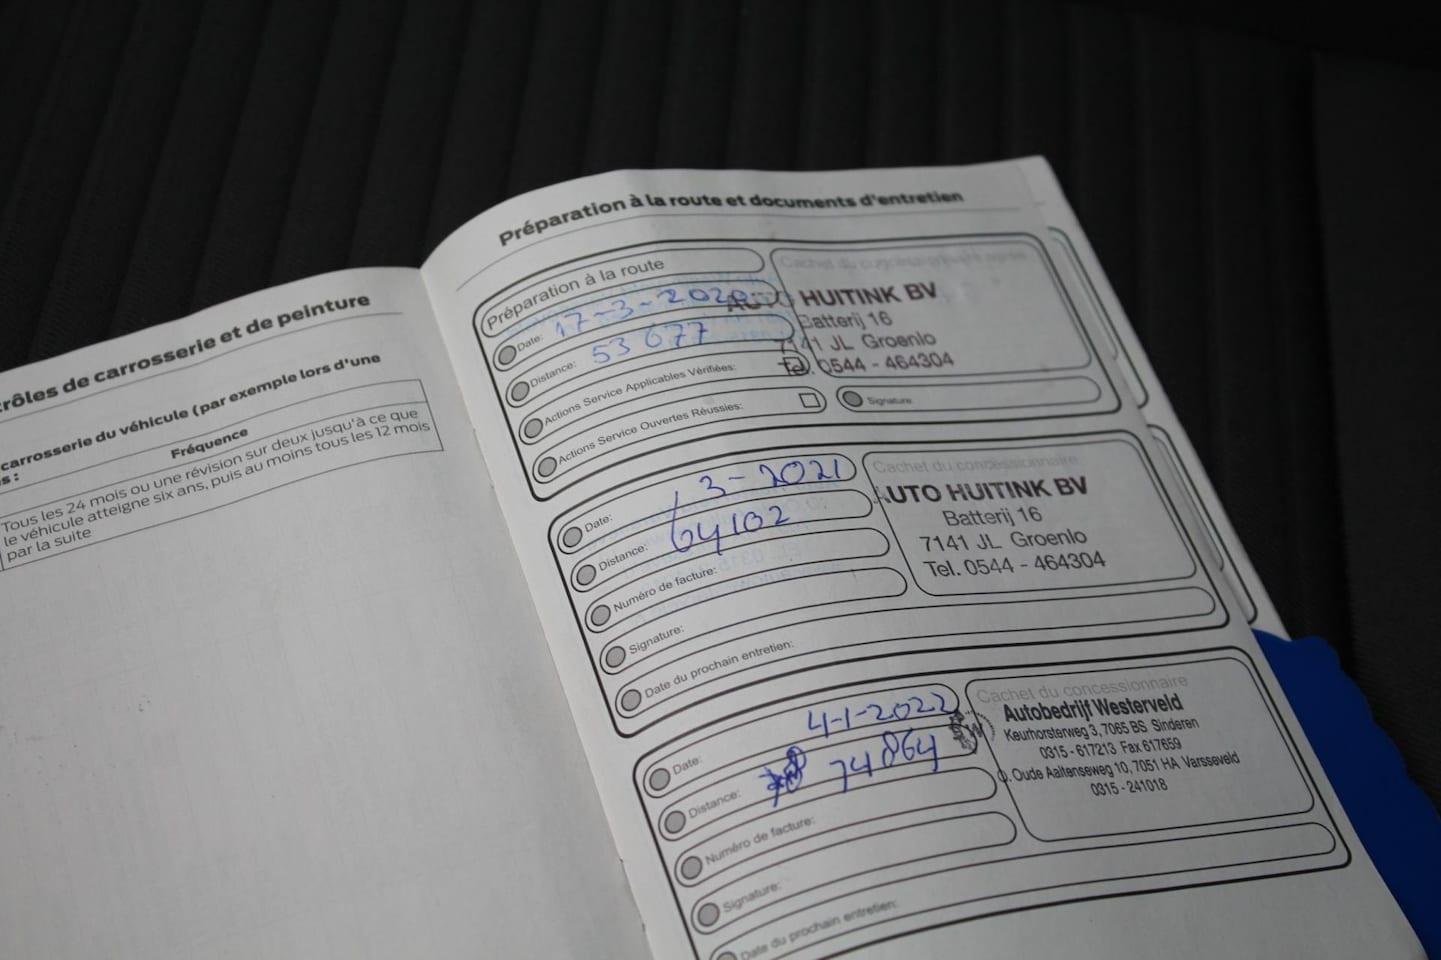 rôles de carrosserie et de peinture
carrosserie du véhicule (par exemple lors d'une
s :
Fréquence
Tous les 24 mois ou une révision sur deux jusqu'à ce que
le véhicule atteigne six ans, puis au moins tous les 12 mois
par la suite
Préparation à la route et documents d'entretien
Préparation à la route
Date: 17-3-2020
Distance: 53 677
Actions Service Applicables Vérifiées:
Actions Service Ouvertes Réussies:
Cachet du concessionnaire
AUTO HUITINK BV
Batterij 16
7141 JL Groenlo
Tel. 0544 - 464304
Signature
Date: / 3-2021
Distance: 64102
Numéro de facture:
Signature:
Date du prochain entretien:
Cachet du concessionnaire
AUTO HUITINK BV
Batterij 16
7141 JL Groenlo
Tel. 0544 - 464304
Date: 4-1-2022
Distance: 74864
Numéro de facture:
Signature:
Date du prochain entretien:
Cachet du concessionnaire
Autobedrijf Westerveld
Keurhorsterweg 3, 7065 BS Sinderen
0315 - 617213 Fax 617659
O. Oude Aaltenseweg 10, 7051 HA Varsseveld
0315 - 241018